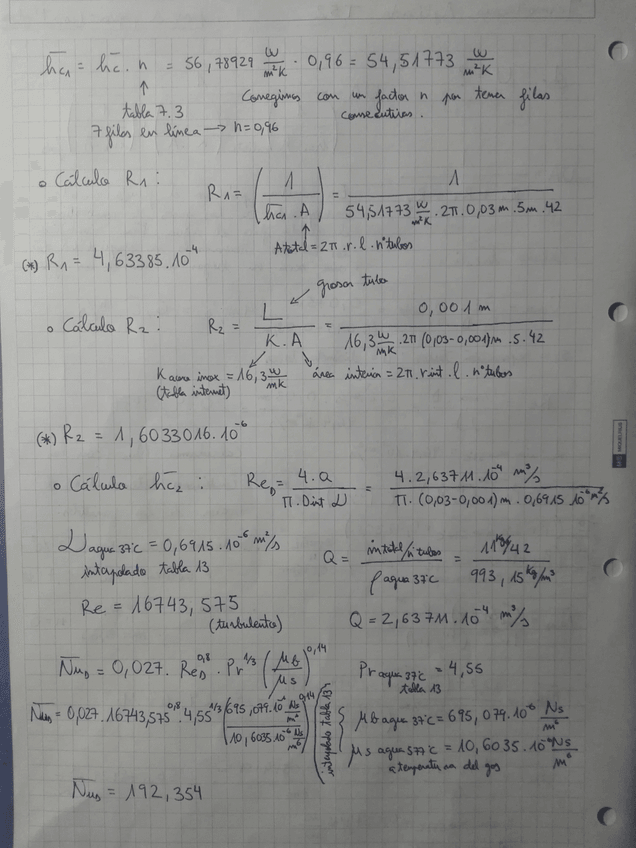 h̄c₁ = h̄c · n = 56,78929 W/m²K · 0,96 = 54,51773 W/m²K
↑
tabla 7.3
7 filas en línea → n=0,96
Corregimos con un factor n por tener filas
consecutivas.
o Cálculo R₁ :
R₁ = (1 / h̄c₁ . A) = 1 / 54,51773 W/m²K . 2π . 0,03 m . 5m . 42
↑
Atotal = 2π . r . l . nºtubos
(*) R₁ = 4,63385 . 10⁻⁴
grosor tubo
o Cálculo R₂ :
R₂ = L / K . A = 0,001 m / 16,3 W/mK . 2π (0,03-0,001)m . 5 . 42
K acero inox = 16,3 W/mK
(tabla internet)
área interior = 2π . r int . l . nºtubos
(*) R₂ = 1,6033016 . 10⁻⁶
o Cálculo h̄c₂ :
Re_D = 4 . Q / π . Dint ν = 4 . 2,63711 . 10⁻⁴ m³/s / π . (0,03-0,001)m . 0,6915 10⁻⁶ m²/s
ν agua 37ºC = 0,6915 . 10⁻⁶ m²/s
interpolado tabla 13
Q = ṁtotal/nºtubos / ρ agua 37ºC = 11 kg/s/42 / 993,15 kg/m³
Re = 16743,575
(turbulento)
Q = 2,63711 . 10⁻⁴ m³/s
N̄u_D = 0,027 . Re_D^0,8 . Pr^1/3 (μb / μs)^0,14
Pr agua 37ºC = 4,55
tabla 13
N̄u_D = 0,027 . 16743,575^0,8 . 4,55^1/3 (695,079.10⁻⁶ Ns/m² / 10,6035.10⁻⁶ Ns/m²)^0,14
(interpolado tabla 13)
μb agua 37ºC = 695,079 . 10⁻⁶ Ns/m²
μs agua 577ºC = 10,6035 . 10⁻⁶ Ns/m²
a temperatura del gas
N̄u_D = 192,354